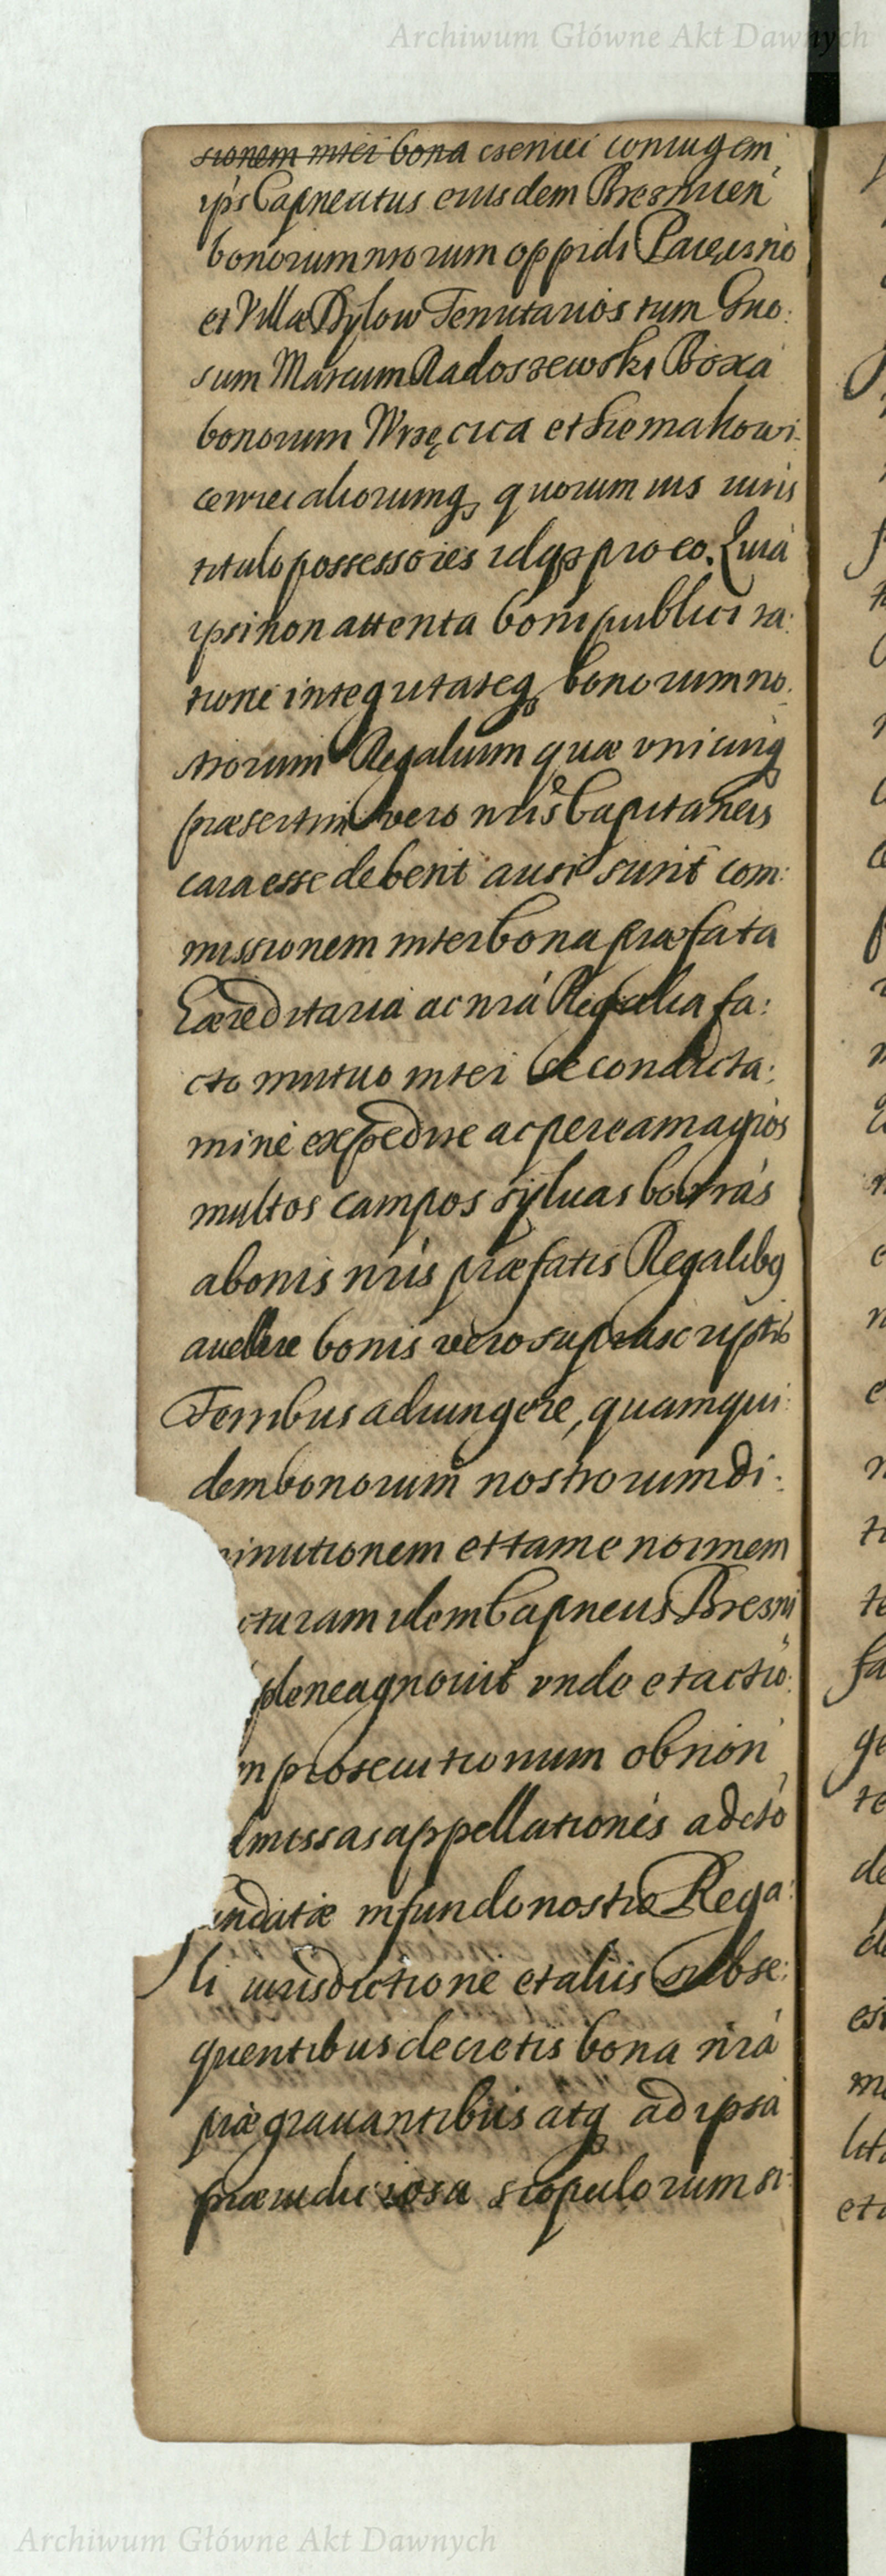 Archiwum Główne Akt Dawnych
sionem inter bona cseniei coniugem
ips Capneatus eiusdem Bresnicen
bonorum nrorum oppidi
et Villæ Dylow Tenutarios tum Gno:
sum Marcum Radoszewski Boxa
bonorum Wręcica et Siemakowi:
cerneraliorumq, quorum ius iuris
titulo possessores idqz pro eo. Quia
ipsi non attenta boni publici ra:
tione integritateq, bonorum no:
strorum Regalium quæ vnicuiq
præsertim vero nris Capitaneis
cara esse debent ausi sunt com:
missionem inter bona præfata
Hæreditaria ac nra Regalia fa:
cto mutuo inter se condicta:
mine expedire ac per eam agros
multos campos syluas borras
a bonis nris præfatis Regalibq
auellere bonis vero suprascriptis
Terribus adiungere, quam qui:
dem bonorum nostrorum di:
inutionem et tame
cturam idem Capneus Bresni
plene agnouit vnde et actio:
m prosecutionum obnon
missas appellationes ad cto
undatiæ in fundo nostro Rega:
li iurisdictione et aliis subse:
quentibus decretis bona nra
prægrauantibus atq ad ipsa
præiudiciosa scopulorum si:
Archiwum Główne Akt Dawnych